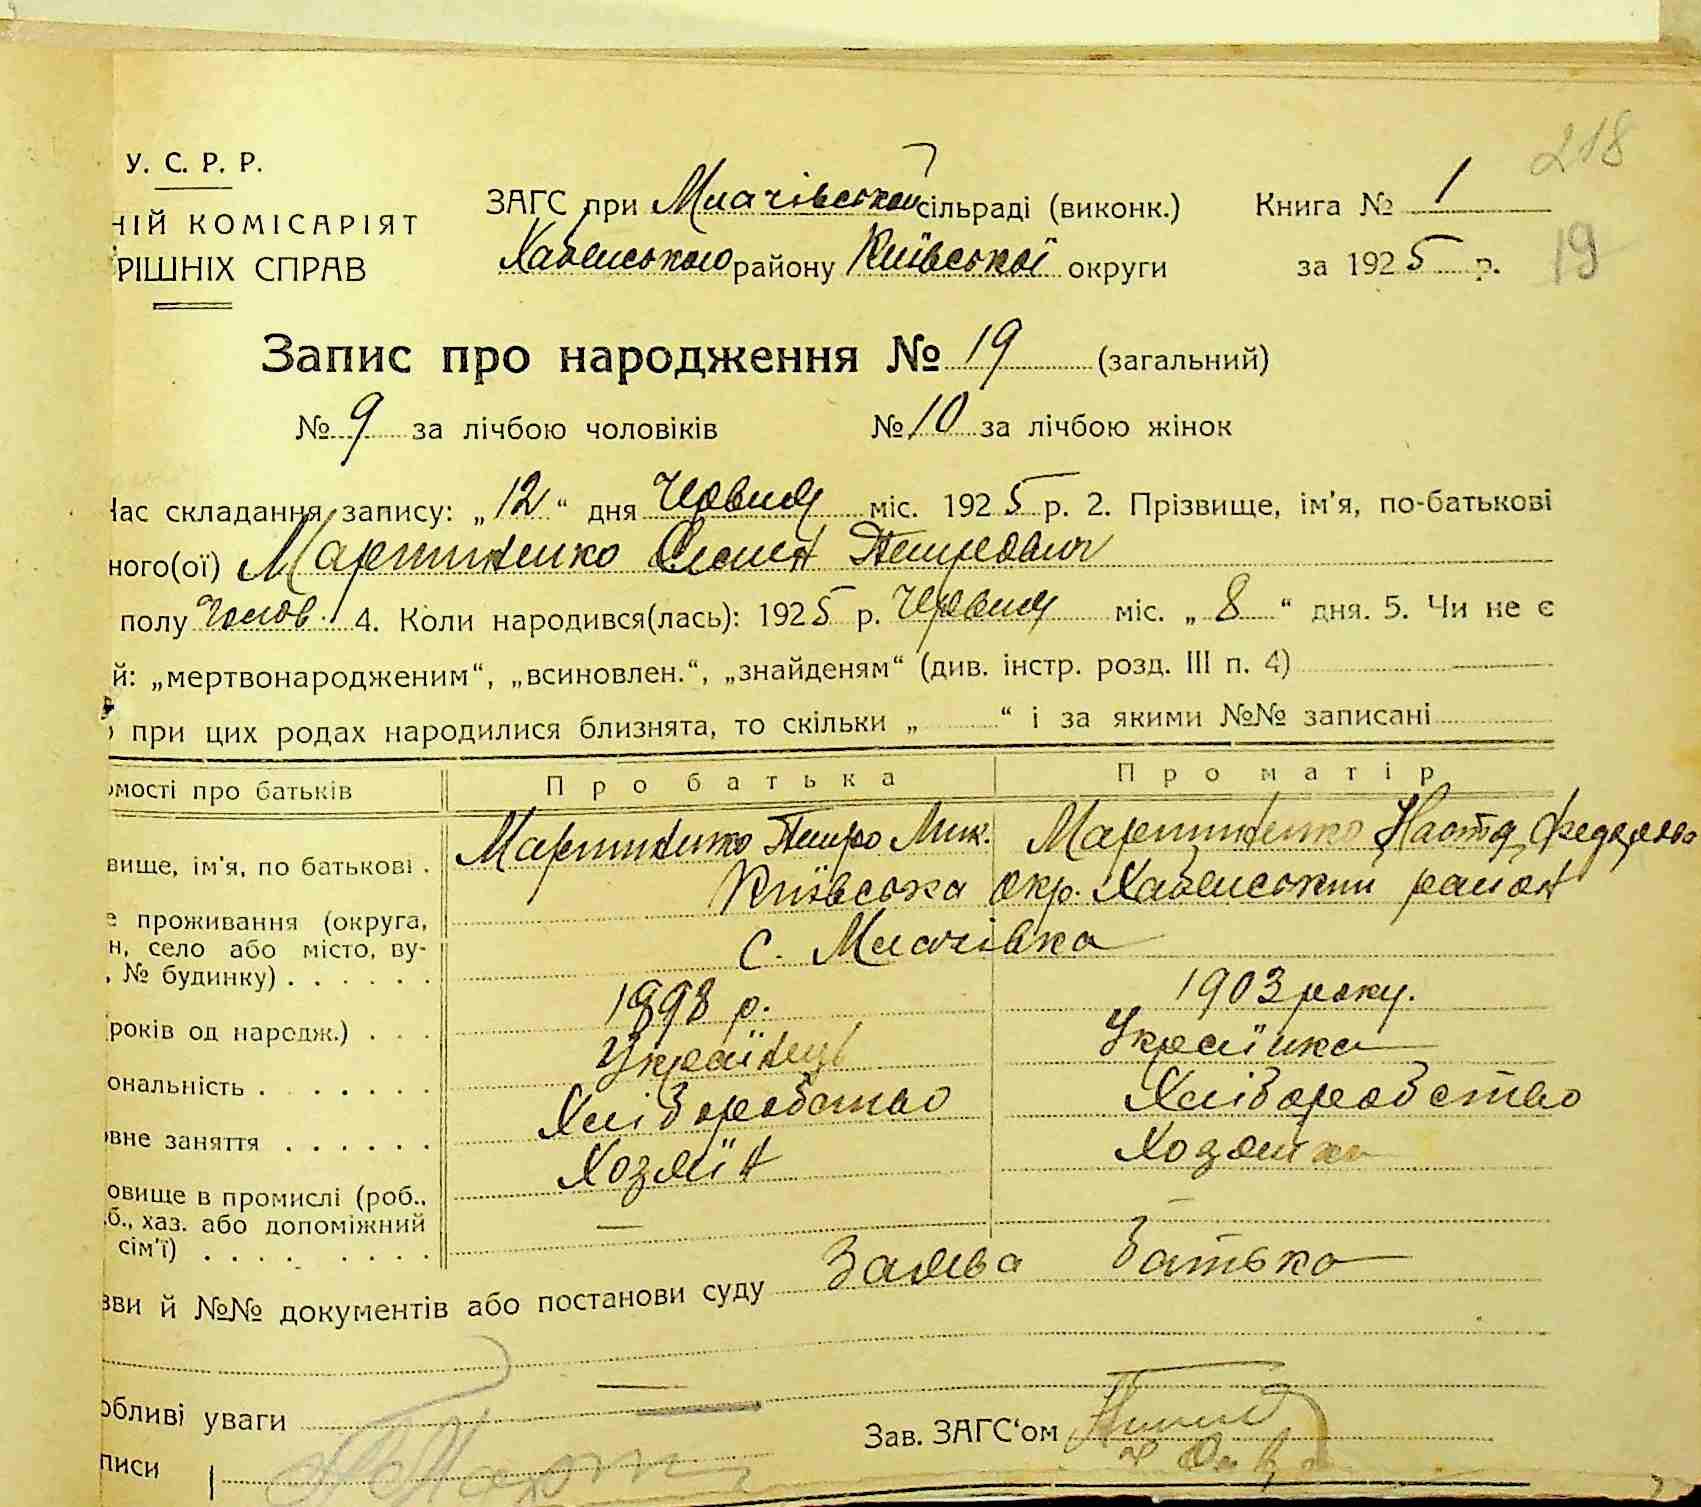 218
У. С. Р. Р.
НІЙ КОМІСАРІЯТ
РІШНІХ СПРАВ
ЗАГС при Мпачівській сільраді (виконк.)
Хабенського району Київської округи
Книга № 1
за 1925 р.
19
Запис про народження № 19 (загальний)
№ 9 за лічбою чоловіків № 10 за лічбою жінок
Час складання запису: „12“ дня Червня міс. 1925 р. 2. Прізвище, ім'я, по-батькові
ного(ої) Мартиненко Петрович
полу Чолов. 4. Коли народився(лась): 1925 р. Червня міс. „8“ дня. 5. Чи не є
й: „мертвонародженим“, „всиновлен.“, „знайденям“ (див. інстр. розд. III п. 4)
при цих родах народилися близнята, то скільки „ “ і за якими №№ записані
омості про батьків Про батька Про матір
вище, ім'я, по батькові . Мартиненко Петро Мик. Мартиненко Настя Федоровна
е проживання (округа, Київська окр. Хабенський район
н, село або місто, ву- с. Мпачівка
, № будинку) . . . . . .
років од народж.) . . . 1898 р. 1903 року.
ональність . . . . . . Українець Українка
овне заняття . . . . . . Хліборобство Хліборобство
овище в промислі (роб., Хозяїн Хозяйка
б., хаз. або допоміжний —
сім'ї) . . . . . . . .
зви й №№ документів або постанови суду Заява батька
обливі уваги —
Зав. ЗАГС'ом
писи